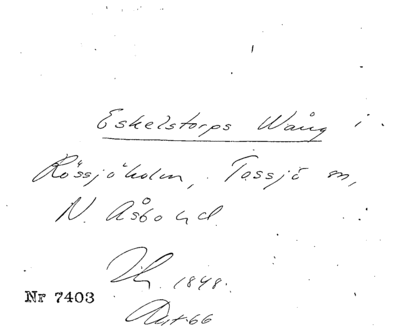 Eskelstorps Wång i
Rössjöholm, Tossjö m,
N. Åsbo hd.
1848.
Nr 7403